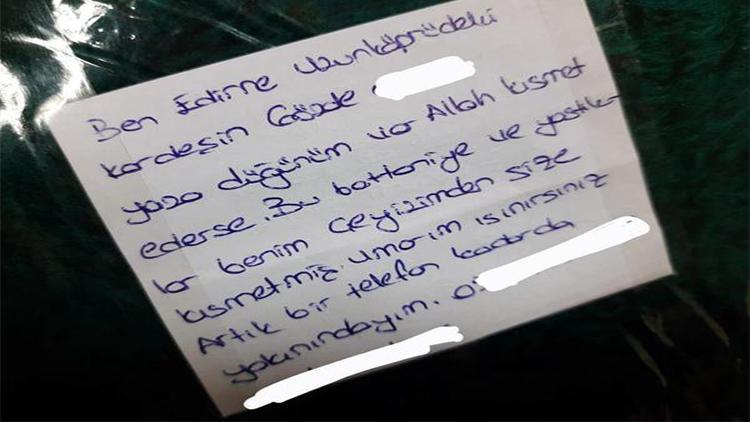 Ben Edirne Uzunköprüdeki
kardeşin Gözde
yaza düğünüm var Allah kısmet
ederse. Bu battaniye ve yastık-
lar benim çeyizimden size
kısmetmiş. Umarım ısınırsınız
Artık bir telefon kadarda
yakınındayım. 05